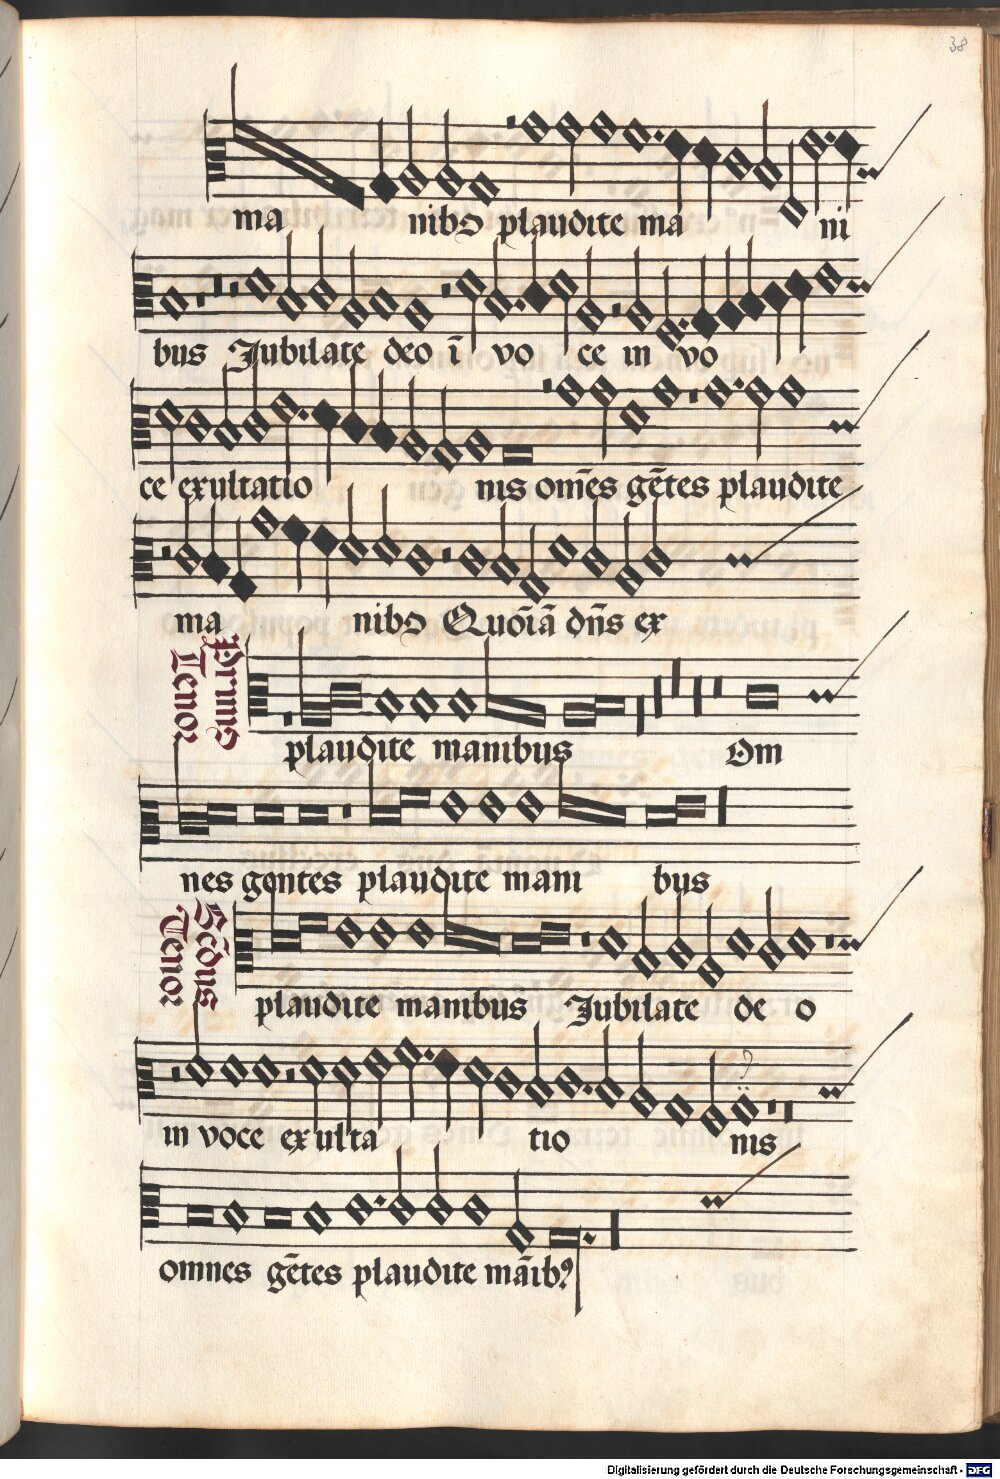 38
ma nibꝰ plaudite ma ni
bus Jubilate deo ī vo ce in vo
ce exultatio nis om̄es gētes plaudite
ma nibꝰ Quoīā dn̄s ex
Primus Tenor
plaudite manibus Om
nes gentes plaudite mani bus
Scd̄us Tenor
plaudite manibus Jubilate de o
in voce exulta tio nis
omnes gētes plaudite māibꝰ
Digitalisierung gefördert durch die Deutsche Forschungsgemeinschaft - DFG